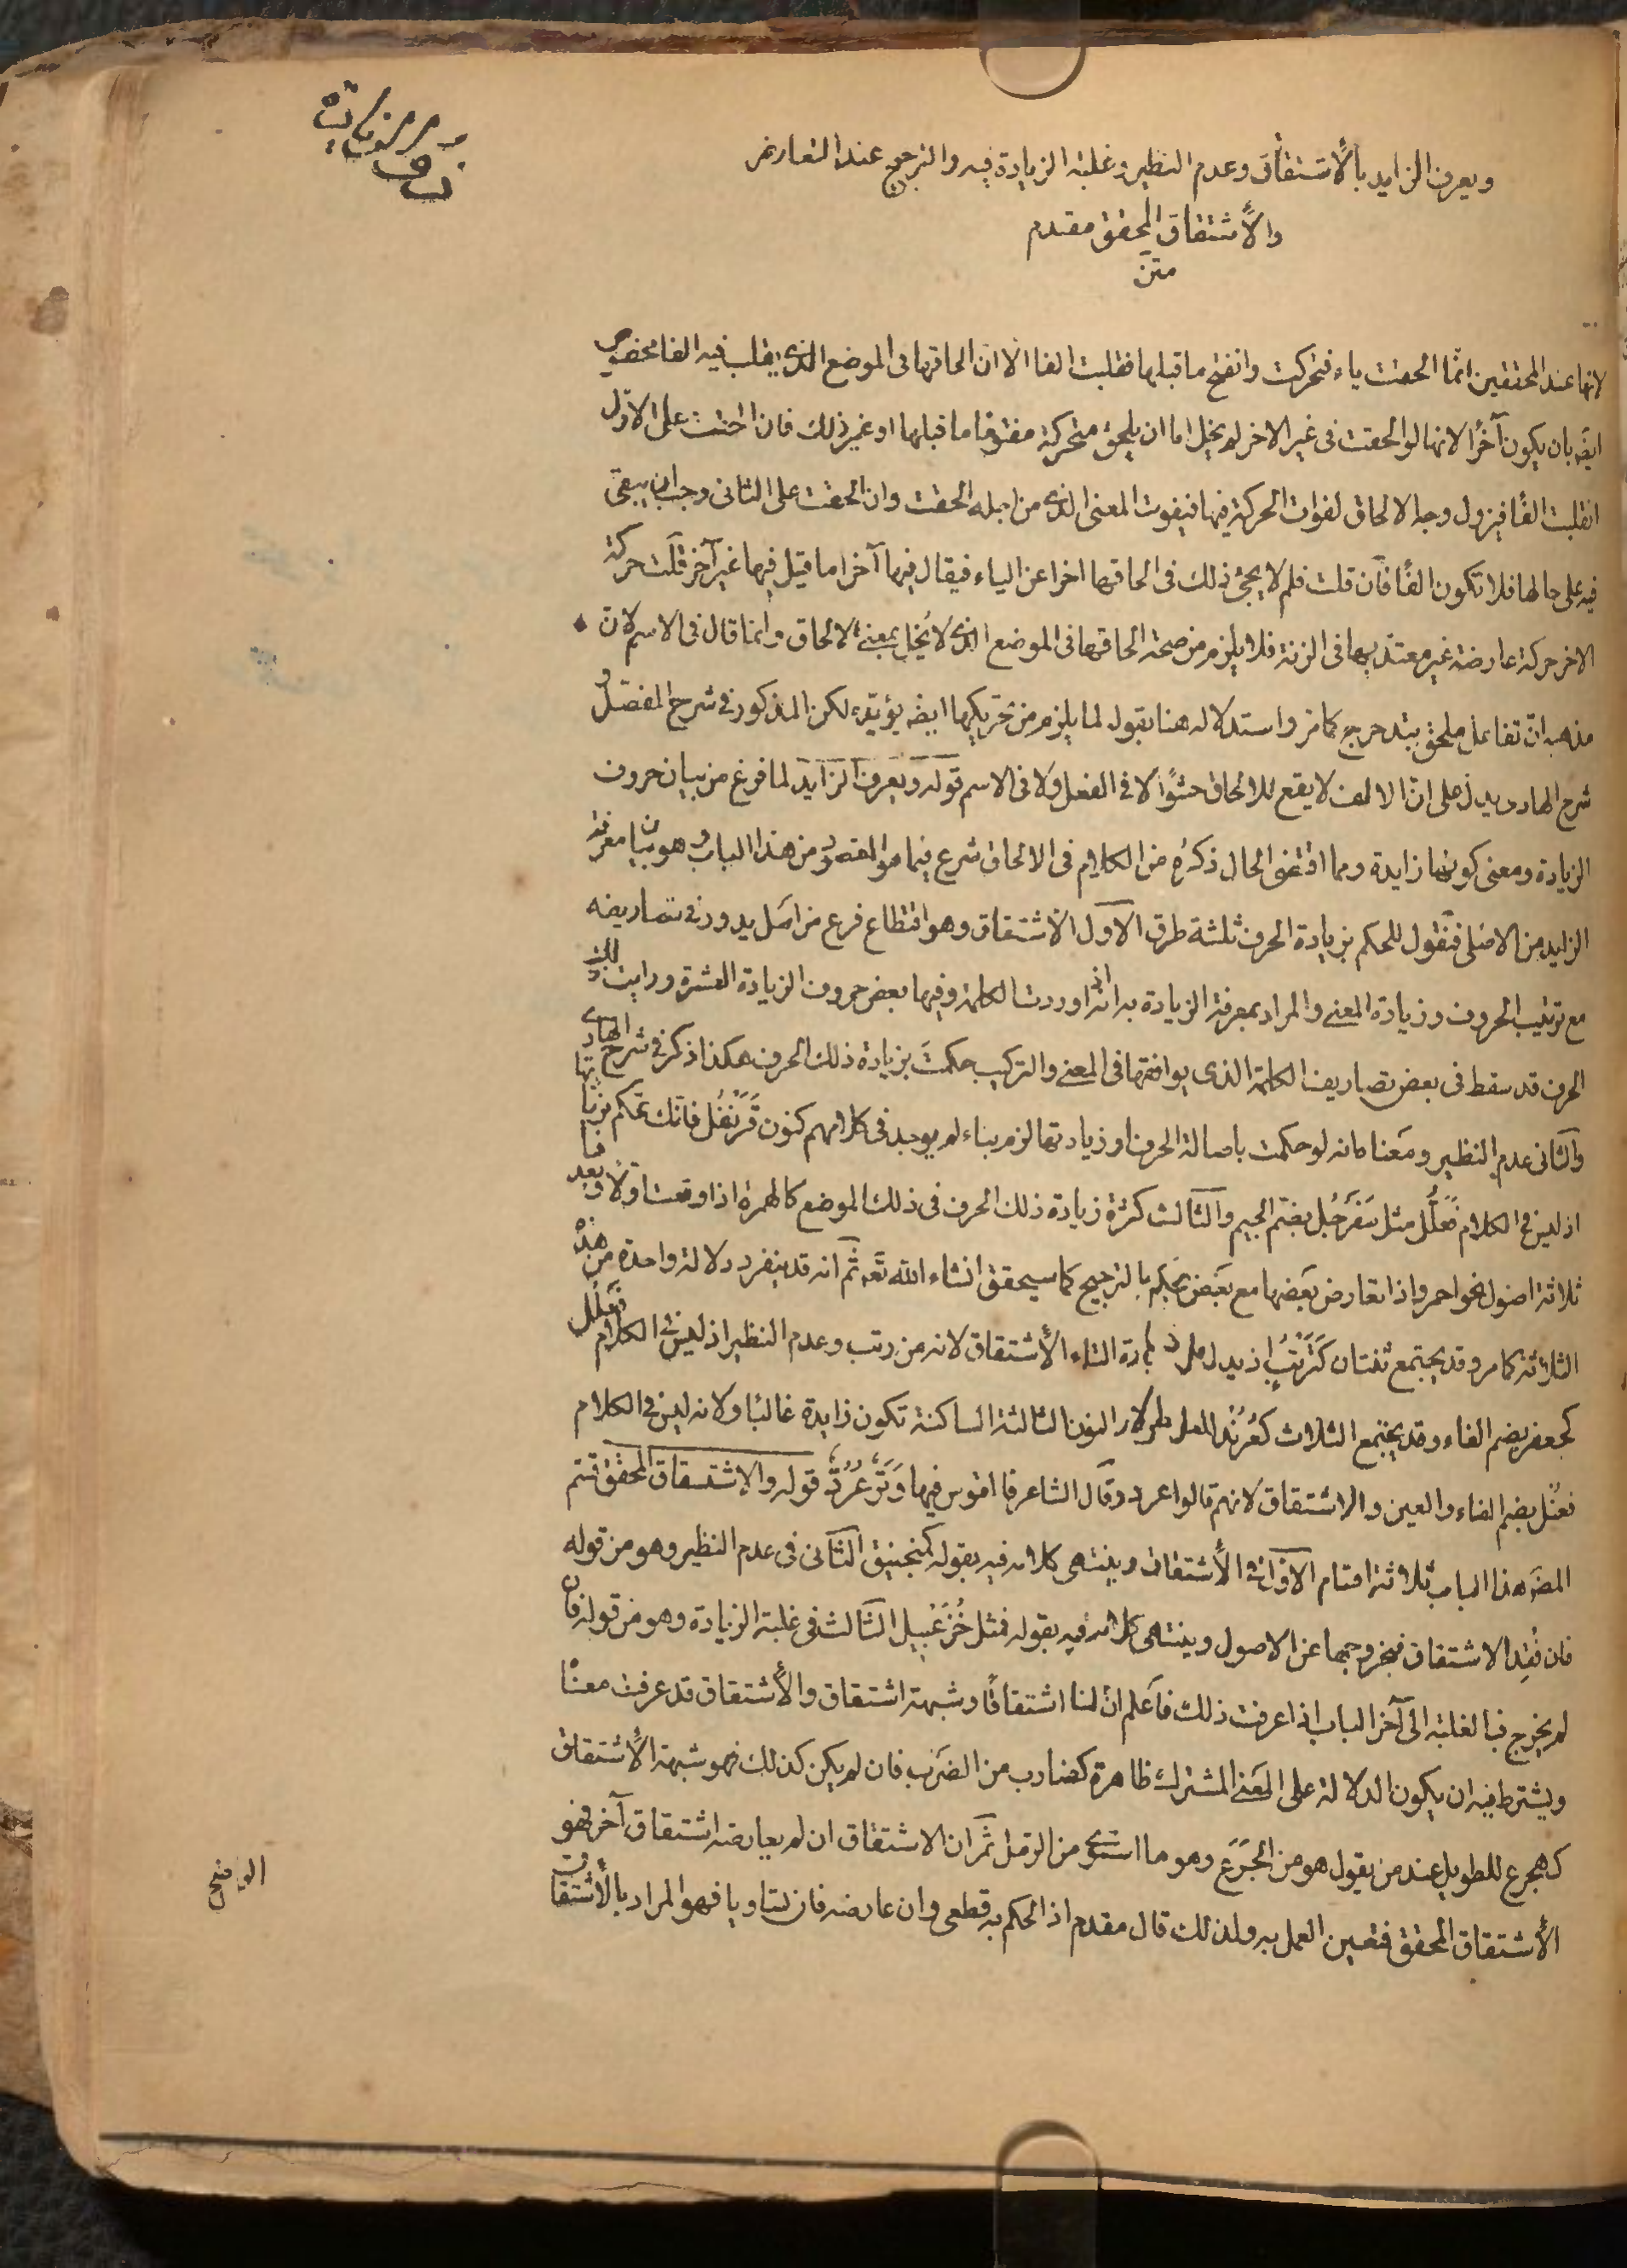 ويعرف الزايد بالأشتقاق وعدم النظير وغلبة الزيادة فيه والترجيح عند التعارض
والأشتقاق المحقق مقدم
متن
لانها عند المحققين انما الحقت ياء فتحركت وانفتح ما قبلها فقلبت الفا الا ان الحاقها فى الموضع الذى يقلب فيه الفا مخصوص
ايضه بان يكون آخرًا لانها لو الحقت فى غير الاخر لم يخل اما ان يلحق متحركة مفتوحًا ما قبلها او غير ذلك فان الحقت على الاول
انقلبت الفًا فيزول وجه الالحاق لفوات الحركة فيها فيفوت المعنى الذى من اجله الحقت وان الحقت على الثانى وجب ان يبقى
فيه على حالها فلا تكون الفًا فان قلت فلم لا يجئ ذلك فى الحاقها اخرا عن الياء فيقال فيها آخرا ما قيل فيها غير آخر قلت حركة
الاخر حركة عارضة غير معتد بها فى الزنة فلا يلزم من صحة الحاقها فى الموضع الذى لا يخل بمعنى الالحاق وانما قال فى الاسم لان
مذهبه ان تفاعل ملحق بتدحرج كما مر واستدلاله هنا بقول لما يلزم من تحريكها ايضه يؤيده لكن المذكور فى شرح المفصل و
شرح الهادى يدل على ان الالف لا يقع للالحاق حشوًا لا فى الفعل ولا فى الاسم قوله ويعرف الزايد لما فرغ من بيان حروف
الزيادة ومعنى كونها زايدة ومما اقتضى الحال ذكره من الكلام فى الالحاق شرع فيما هو المقصود من هذا الباب وهو بيان معرفة
الزايد من الاصلى فنقول للحكم بزيادة الحرف ثلثة طرق الاول الأشتقاق وهو اقتطاع فرع من اصل يدور فى تصاريفه
مع ترتيب الحروف وزيادة المعنى والمراد بمعرفة الزيادة به انه اذا وردت الكلمة وفيها بعض حروف الزيادة العشرة ورايت ذلك
الحرف قد سقط فى بعض تصاريف الكلمة الذى يوافقها فى المعنى والتركيب حكمت بزيادة ذلك الحرف هكذا ذكر فى شرح الهادى
والثانى عدم النظير ومعناه انه لو حكمت باصالة الحرف او زيادتها لزم بناء لم يوجد فى كلامهم كنون قَرَنْفُل فانك تحكم بزيادتها
اذ ليس فى الكلام فَعَلُّل مثل سَفَرجُل بضم الجيم والثالث كثرة زيادة ذلك الحرف فى ذلك الموضع كالهمزة اذا وقعت اولا وبعدها
ثلاثة اصول نحو احمر واذا تعارض بعضها مع بعض يحكم بالترجيح كما سيحقق انشاء الله تعه ثم انه قد ينفرد دلالة واحدة من هذه
الثلاثة كما مر وقد يجتمع ثنتان كتَرْتُبٍ اذ يدل على زيادة التاء الأشتقاق لانه من رتب وعدم النظير اذ ليس فى الكلام فَعْلُل
كجعفر بضم الفاء وقد يجتمع الثلاث كعُرُنْد النون الثالثة الساكنة تكون زايدة غالبًا ولانه ليس فى الكلام
فعنل بضم الفاء والعين والاشتقاق لانهم قالوا عرد وقال الشاعر فيها وَتَرٌ عُرُدٌّ قوله والاشتقاق المحقق قسم
المصَ هذا الباب ثلاثة اقسام الاول فى الأشتقاق وينتهى كلامه فيه بقوله كمنجنيق الثانى فى عدم النظير وهو من قوله
فان فُقِد الاشتقاق فبخروجها عن الاصول وينتهى كلامه فيه بقوله فمثل خُزَعْبيل الثالث فى غلبة الزيادة وهو من قوله فان
لم يخرج فبالغلبة الى آخر الباب اذا عرفت ذلك فاعلم ان لنا اشتقاقًا وشبهة اشتقاق والأشتقاق قد عرفت معناه
ويشترط فيه ان يكون الدلالة على المعنى المشترك ظاهرة كضارب من الضرب فان لم يكن كذلك فهو شبهة الأشتقاق
كهجرع للطويل عند من يقول هو من الجَرَع وهو ما استوى من الرمل ثم ان الاشتقاق ان لم يعارضه اشتقاق آخر فهو
الأشتقاق المحقق فتعين العمل به ولذلك قال مقدم اذ الحكم به قطعى وان عارضه فان تساويا فهو المراد بالأشتقاق
الواضح